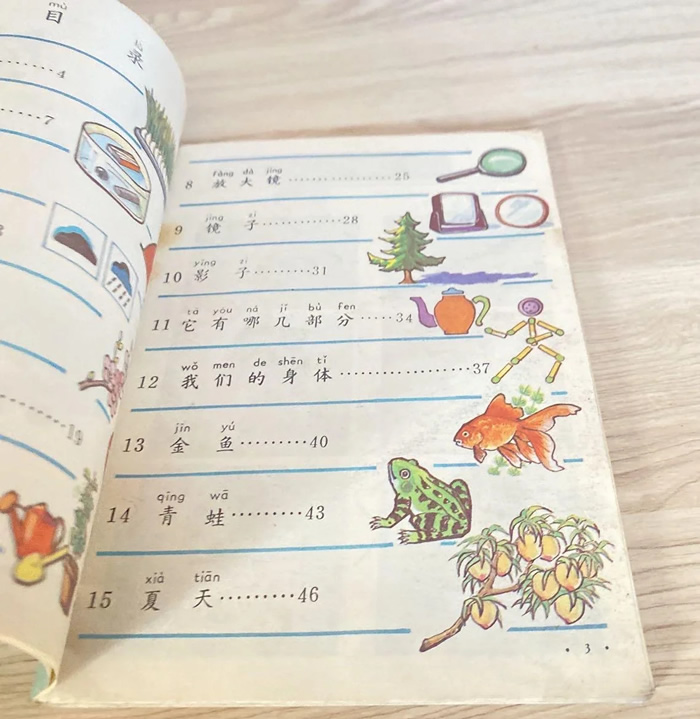 mù
目 录
4
7
19
fàng dà jìng
8 放 大 镜 ·················· 25
jìng zi
9 镜 子 ············· 28
yǐng zi
10 影 子 ········· 31
tā yǒu nǎ jǐ bù fen
11 它 有 哪 几 部 分 ····· 34
wǒ men de shēn tǐ
12 我 们 的 身 体 ··················· 37
jīn yú
13 金 鱼 ········· 40
qīng wā
14 青 蛙 ········· 43
xià tiān
15 夏 天 ········· 46
· 3 ·